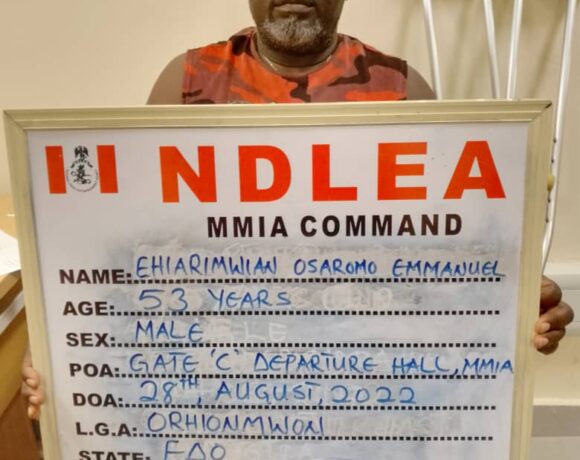 NDLEA
MMIA COMMAND
NAME: EHIARIMWIAN OSAROMO EMMANUEL
AGE: 53 YEARS
SEX: MALE
POA: GATE 'C' DEPARTURE HALL, MMIA
DOA: 28TH, AUGUST, 2022
L.G.A: ORHIONMWON
STATE: EDO